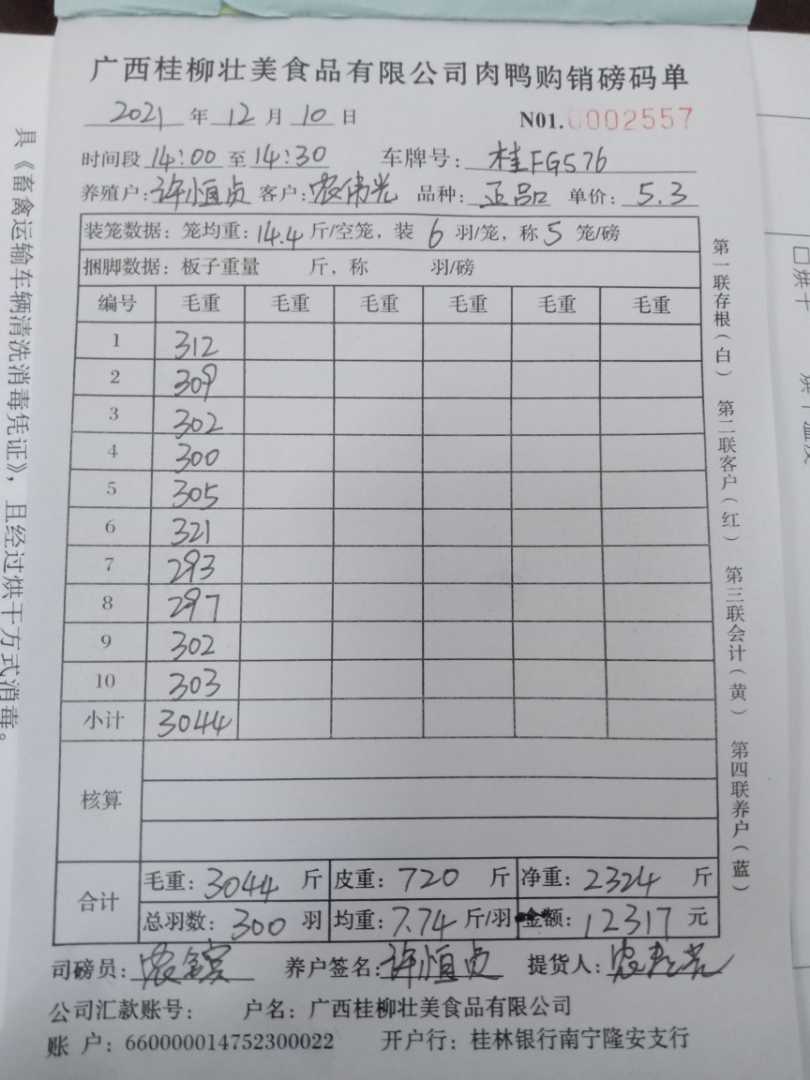 广西桂柳壮美食品有限公司肉鸭购销磅码单
2021 年 12 月 10 日 N01.0002557
时间段 14:00 至 14:30 车牌号: 桂FG576
养殖户: 许恒贞 客户: 农伟光 品种: 正品 单价: 5.3
装笼数据: 笼均重: 14.4 斤/空笼, 装 6 羽/笼, 称 5 笼/磅
捆脚数据: 板子重量 斤, 称 羽/磅
编号 毛重 毛重 毛重 毛重 毛重 毛重
1 312
2 309
3 302
4 300
5 305
6 321
7 293
8 297
9 302
10 303
小计 3044
核算
合计
毛重: 3044 斤 皮重: 720 斤 净重: 2324 斤
总羽数: 300 羽 均重: 7.74 斤/羽 金额: 12317 元
司磅员: 农 养户签名: 许恒贞 提货人: 农
公司汇款账号: 户名: 广西桂柳壮美食品有限公司
账 户: 660000014752300022 开户行: 桂林银行南宁隆安支行
第一联存根(白) 第二联客户(红) 第三联会计(黄) 第四联养户(蓝)
具《畜禽运输车辆清洗消毒凭证》, 且经过烘干方式消毒。
□烘干